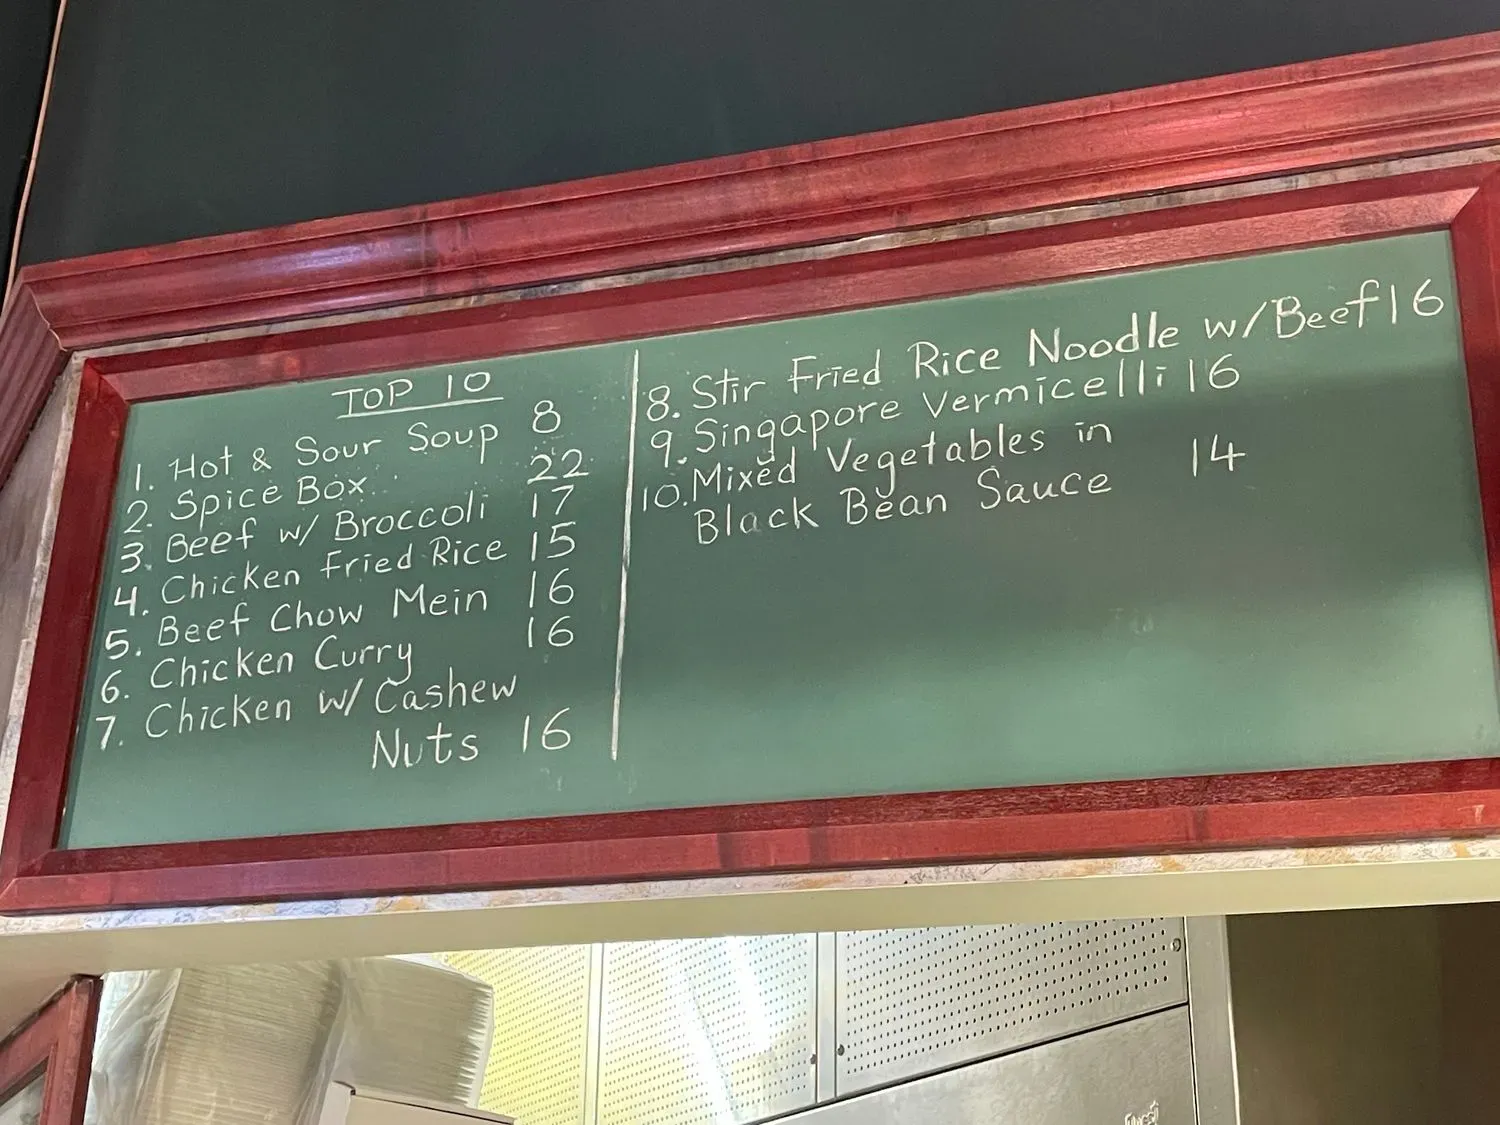 TOP 10
1. Hot & Sour Soup 8
2. Spice Box 22
3. Beef w/ Broccoli 17
4. Chicken Fried Rice 15
5. Beef Chow Mein 16
6. Chicken Curry 16
7. Chicken w/ Cashew
Nuts 16
8. Stir Fried Rice Noodle w/ Beef 16
9. Singapore Vermicelli 16
10. Mixed Vegetables in
Black Bean Sauce 14